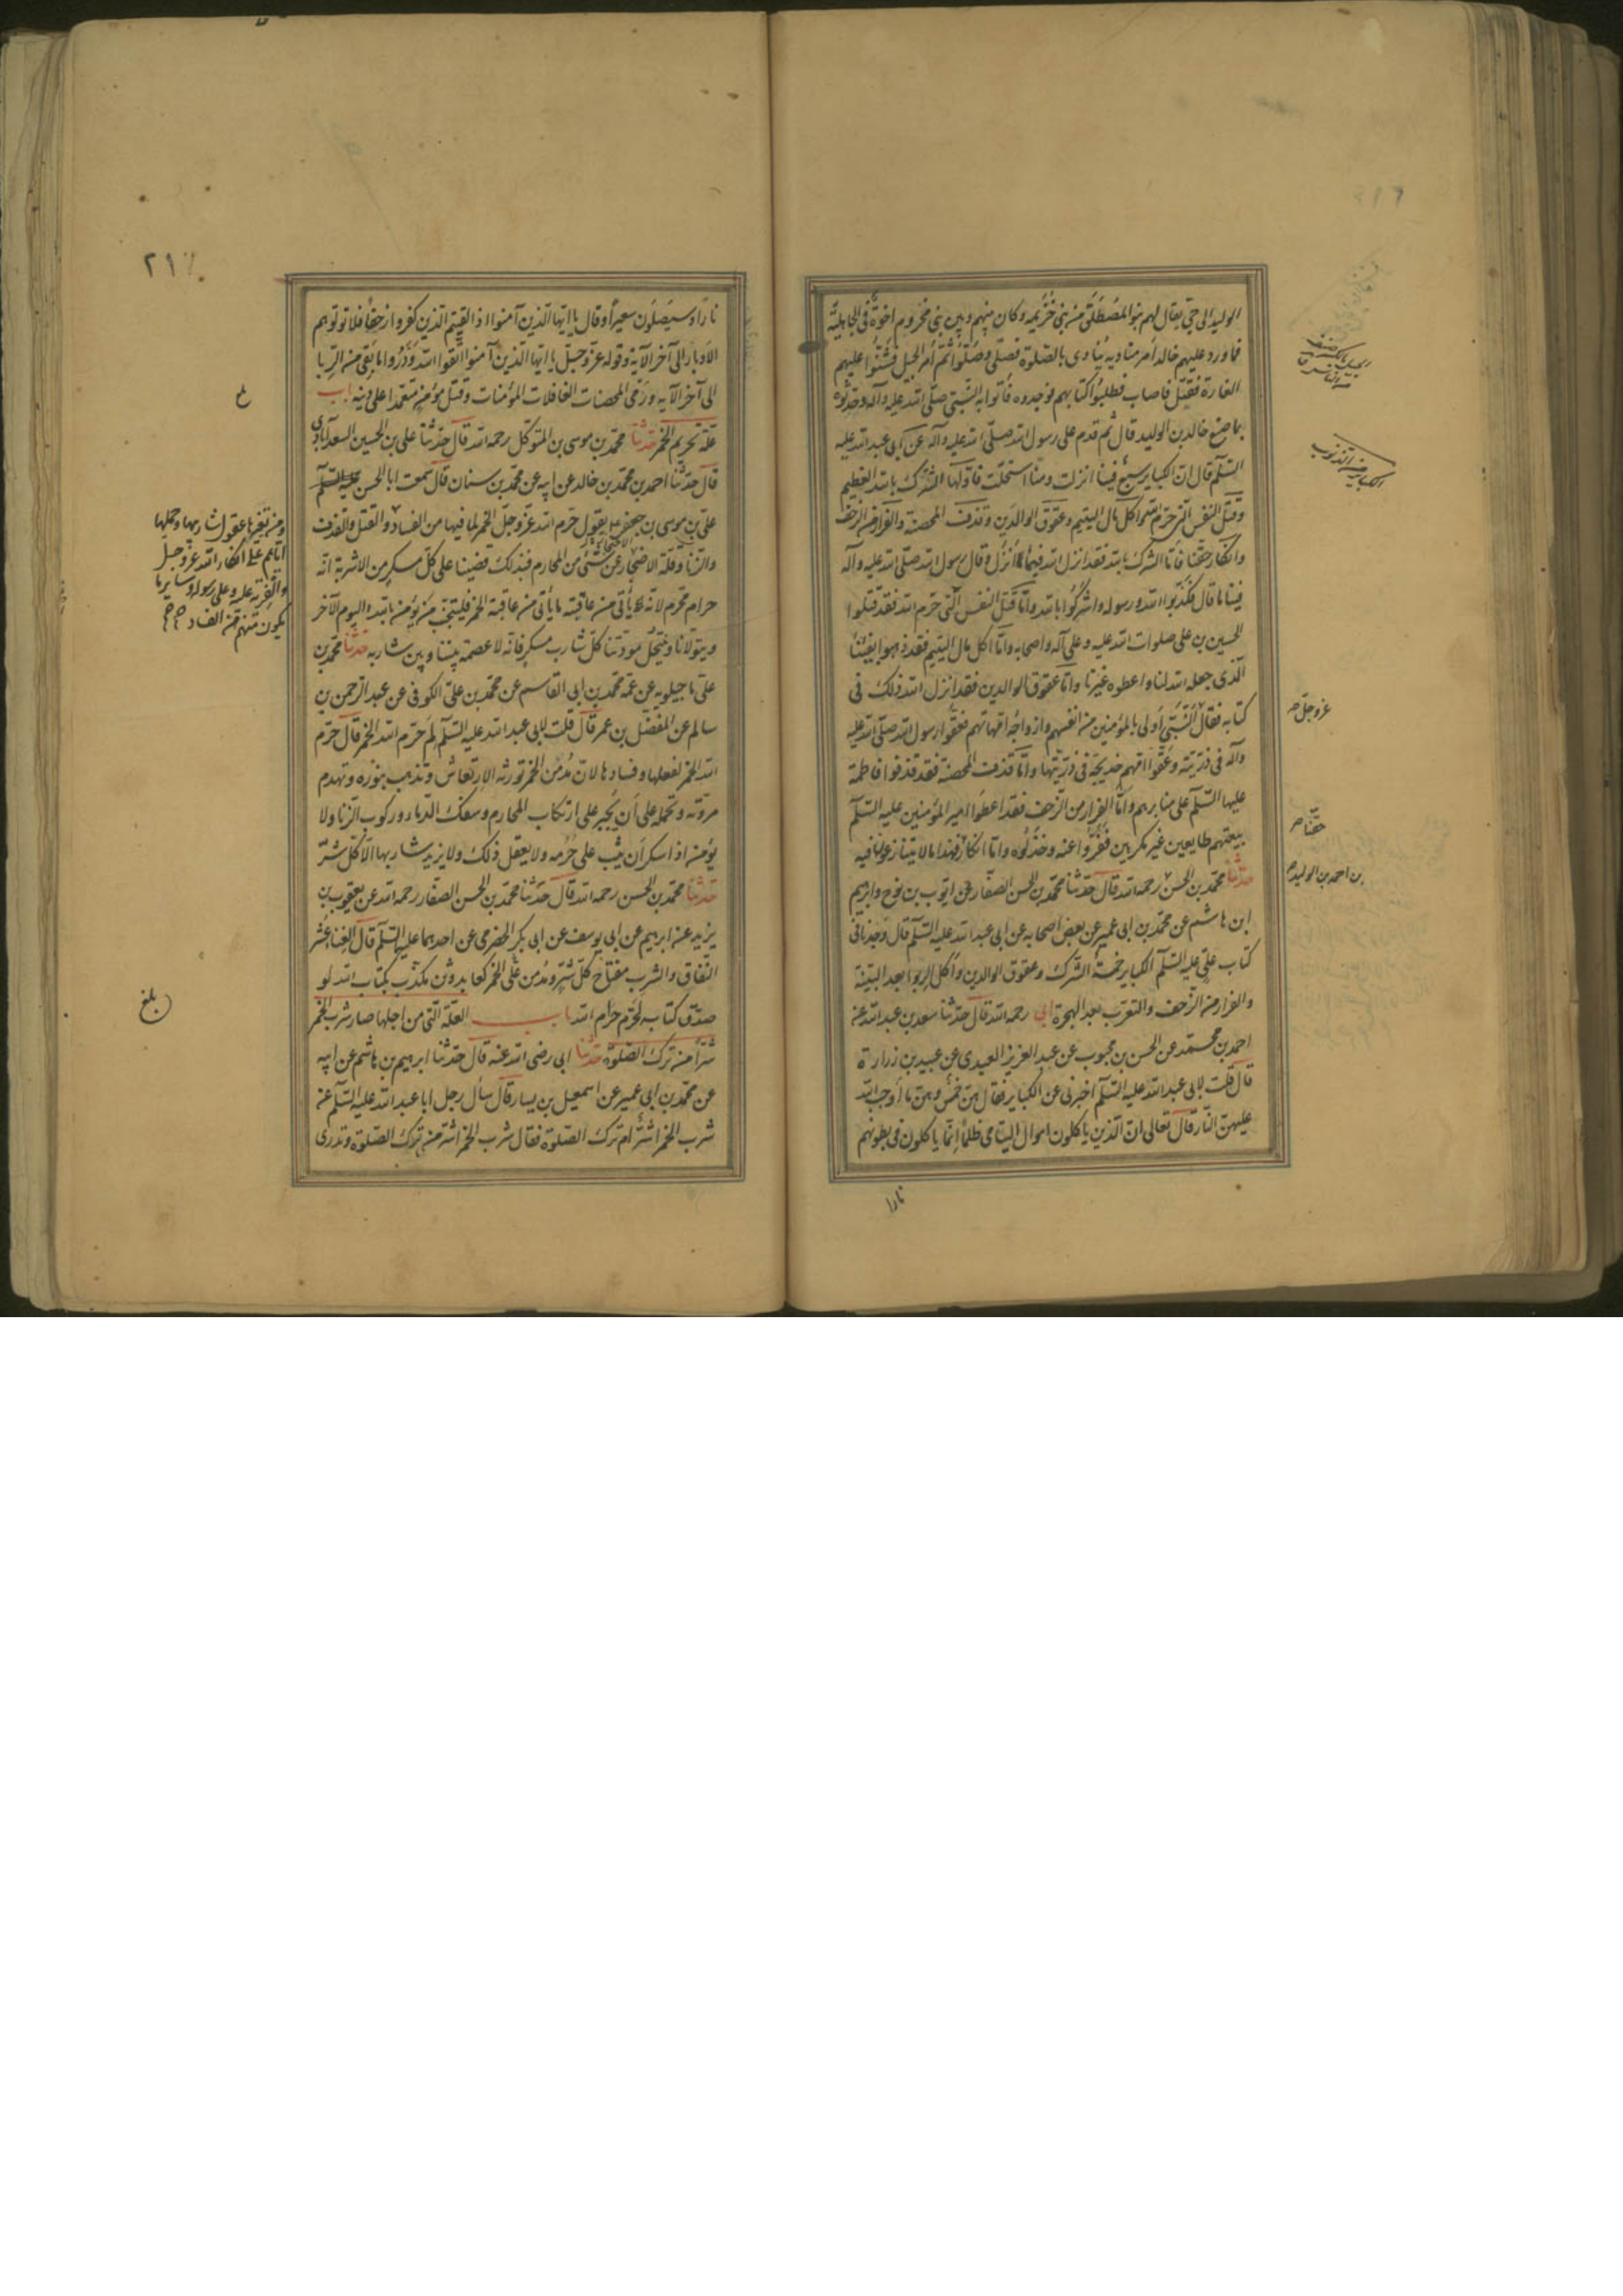 الوليد الى حي يقال لهم بنو المصطلق من بني خزيمه وكان بينهم وبين بني مخزوم اخوة في الجاهلية
فلما ورد عليهم خالد امر مناديه ينادى بالصلوة فصلى وصلوا ثم امر الخيل فشنوا عليهم
الغارة فقتل فاصاب فطلبوا كتابهم فوجدوه فاتوا به النبي صلى الله عليه وآله وحدثوه
بما صنع خالد بن الوليد قال ثم قدم على رسول الله صلى الله عليه وآله عن ابي عبد الله عليه
السلم قال ان الكباير سبع فينا انزلت ومنا استحلت فاولها الشرك بالله العظيم
وقتل النفس التي حرم الله واكل مال اليتيم وعقوق الوالدين وقذف المحصنة والفرار من الزحف
وانكار حقنا فاما الشرك بالله فقد انزل الله فينا ما انزل وقال رسول الله صلى الله عليه وآله
فينا ما قال فكذبوا الله ورسوله واشركوا بالله واما قتل النفس التي حرم الله فقد قتلوا
الحسين بن على صلوات الله عليه وعلى آله واصحابه واما اكل مال اليتيم فقد ذهبوا بفيئنا
الذى جعله الله لنا واعطوه غيرنا واما عقوق الوالدين فقد انزل الله ذلك فى
كتابه فقال النبي اولى بالمؤمنين من انفسهم وازواجه امهاتهم فعقوا رسول الله صلى الله عليه
وآله فى ذريته وعقوا امهم خديجة فى ذريتها واما قذف المحصنة فقد قذفوا فاطمة
عليها السلم على منابرهم واما الفرار من الزحف فقد اعطوا امير المؤمنين عليه السلم
بيعتهم طايعين غير مكرهين ففروا عنه وخذلوه واما انكار فهذا ما لا يتنازعون فيه
حدثنا محمد بن الحسن رحمه الله قال حدثنا محمد بن الحسن الصفار عن ايوب بن نوح وابرهيم
ابن هاشم عن محمد بن ابى عمير عن بعض اصحابه عن ابى عبد الله عليه السلم قال وجدنا فى
كتاب على عليه السلم الكباير خمسة الشرك وعقوق الوالدين واكل الربوا بعد البينة
والفرار من الزحف والتعرب بعد الهجرة ابي رحمه الله قال حدثنا سعد بن عبد الله عن
احمد بن محمد عن الحسن بن محبوب عن عبد العزيز العبدى عن عبيد بن زرارة
قال قلت لابى عبد الله عليه السلم اخبرنى عن الكباير فقال هن خمس وهن ما اوجب الله
عليهن النار قال تعالى ان الذين ياكلون اموال اليتامى ظلما انما ياكلون فى بطونهم
نارا
الكباير من الذنوب
عز وجل
حقنا
بن احمد بن الوليد
٢١٧
نارا وسيصلون سعيرا وقال يا ايها الذين آمنوا اذا لقيتم الذين كفروا زحفا فلا تولوهم
الادبار الى آخر الآية وقوله عز وجل يا ايها الذين آمنوا اتقوا الله وذروا ما بقى من الربا
الى آخر الآيه ورمى المحصنات الغافلات المؤمنات وقتل مؤمن متعمدا على دينه باب
علة تحريم الخمر حدثنا محمد بن موسى بن المتوكل رحمه الله قال حدثنا على بن الحسين السعدآبادى
قال حدثنا احمد بن محمد بن خالد عن ابيه عن محمد بن سنان قال سمعت ابا الحسن عليه السلم
على بن موسى بن جعفر يقول حرم الله عز وجل الخمر لما فيها من الفساد والقتل والقذف
والزنا وقلة الاحتجاز عن شئ من المحارم فبذلك قضينا على كل مسكر من الاشربة انه
حرام محرم لانه يأتى من عاقبته ما يأتى من عاقبة الخمر فليتجنب من يؤمن بالله واليوم الآخر
ويتولانا وينتحل مودتنا كل شارب مسكر فانه لا عصمة بيننا وبين شاربه حدثنا محمد بن
على ماجيلويه عن عمه محمد بن ابى القاسم عن محمد بن على الكوفى عن عبد الرحمن بن
سالم عن المفضل بن عمر قال قلت لابى عبد الله عليه السلم لم حرم الله الخمر قال حرم
الله الخمر لفعلها وفسادها لان مدمن الخمر تورثه الارتعاش وتذهب بنوره وتهدم
مروته وتحمله على ان يجسر على ارتكاب المحارم وسفك الدماء وركوب الزنا ولا
يؤمن اذا سكر ان يثب على حرمه ولا يعقل ذلك ولا يزيد شاربها الا كل شر
حدثنا محمد بن الحسن رحمه الله قال حدثنا محمد بن الحسن الصفار رحمه الله عن يعقوب بن
يزيد عن ابرهيم عن ابى يوسف عن ابى بكر الحضرمى عن احدهما عليه السلم قال الغنا عش
النفاق والشرب مفتاح كل شر ومدمن على الخمر كعابد وثن مكذب بكتاب الله لو
صدق كتاب الله لحرم حرام الله باب العلة التى من اجلها صار شرب الخمر
شرا من ترك الصلوة حدثنا ابى رضى الله عنه قال حدثنا ابرهيم بن هاشم عن ابيه
عن محمد بن ابى عمير عن اسمعيل بن يسار قال سأل رجل ابا عبد الله عليه السلم عن
شرب الخمر اشر ام ترك الصلوة فقال شرب الخمر اشر من ترك الصلوة وتدرى
ومن تغيرها عقول شاربها وحملها
اياهم على انكار الله عز وجل
والفرية عليه وعلى رسوله وساير ما
يكون منهم من الفساد
بلغ